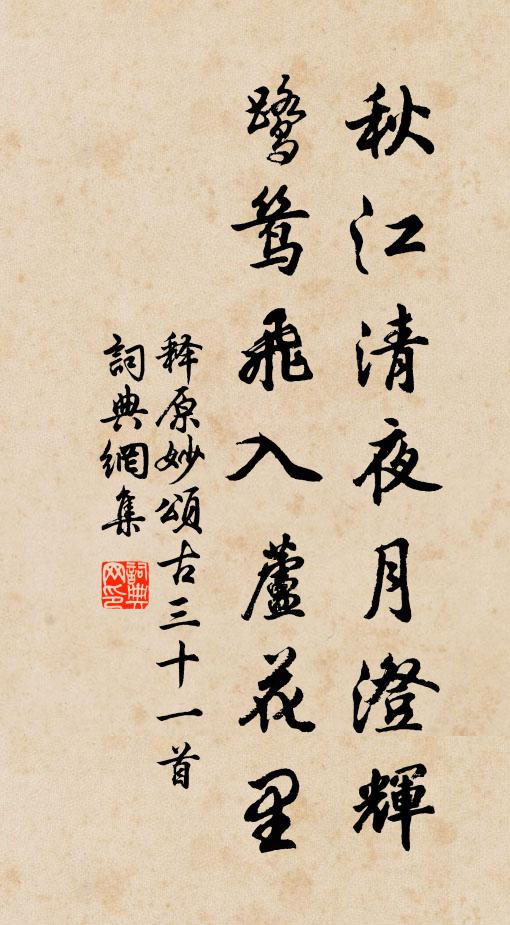 秋江清夜月澄輝
鷺鷥飛入蘆花里
释原妙頌古三十一首
詞典網集
詞典网印